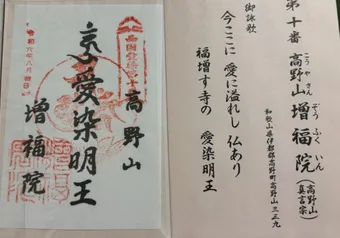 第十番 高野山 増福院(高野山真言宗)
こうやさん ぞうふくいん
和歌山県伊都郡高野町高野山三三九
御詠歌
今ここに 愛に溢れし 仏あり
福増す寺の 愛染明王
高野山
愛染明王
増福院
令和六年八月